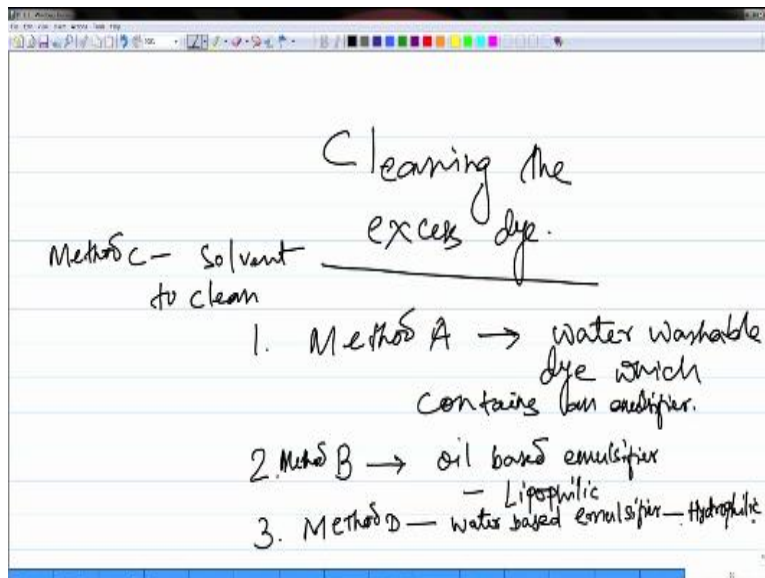 Cleaning the
excess dye.
Method C - Solvent
to clean
1. Method A → water washable
dye which
contains an emulsifier.
2. Method B → oil based emulsifier
- Lipophilic
3. Method D - water based emulsifier - Hydrophilic